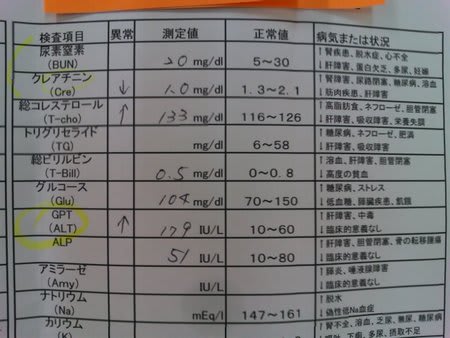 検査項目 異常 測定値 正常値 病気または状況
尿素窒素 (BUN) 20 mg/dl 5~30 ↑腎疾患、脱水症、心不全
↓肝障害、蛋白欠乏、多尿、妊娠
クレアチニン (Cre) ↓ 1.0 mg/dl 1.3~2.1 ↑腎障害、尿路閉塞、糖尿病、溶血
↓筋肉疾患、肝障害
総コレステロール (T-cho) ↑ 133 mg/dl 116~126 ↑高脂肪食、ネフローゼ、胆管閉塞
↓肝障害、吸収障害、栄養失調
トリグリセライド (TG) mg/dl 6~58 ↑糖尿病、ネフローゼ、肥満
↓肝障害、吸収障害
総ビリルビン (T-Bill) 0.5 mg/dl 0~0.8 ↑溶血、肝障害、胆管閉塞
↓高度の貧血
グルコース (Glu) 104 mg/dl 70~150 ↑糖尿病、ストレス
↓低血糖、膵臓疾患、飢餓
GPT (ALT) ↑ 179 IU/L 10~60 ↑肝障害、中毒
↓臨床的意義なし
ALP 51 IU/L 10~80 ↑肝障害、胆管閉塞、骨の転移腫瘍
↓臨床的意義なし
アミラーゼ (Amy) IU/L ↑膵炎、唾液腺障害
↓臨床的意義なし
ナトリウム (Na) mEq/l 147~161 ↑脱水
↓偽性低Na血症
カリウム (K) ↑腎不全、溶血、乏尿、無尿、糖尿病